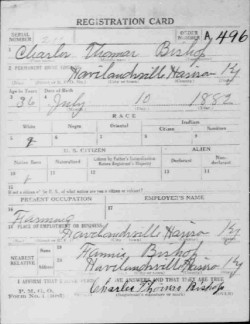 REGISTRATION CARD
SERIAL NUMBER
ORDER NUMBER A 496
Charles Thomas Bishop
2 PERMANENT HOME ADDRESS
Havilandsville Harrison Ky
Age in Years
Date of Birth
36 July 10 1882
RACE
White Negro Oriental Indian
Citizen Noncitizen
U. S. CITIZEN ALIEN
Native Born Naturalized Citizen by Father's Naturalization Before Registrant's Majority
10
If not a citizen of the U. S., of what nation are you a citizen or subject?
PRESENT OCCUPATION EMPLOYER'S NAME
Farming
PLACE OF EMPLOYMENT OR BUSINESS
Havilandsville Harrison Ky
NEAREST RELATIVE
Name
Fannie Bishop
Address
Havilandsville Harrison Ky
I AFFIRM THAT I HAVE VERIFIED ABOVE ANSWERS AND THAT THEY ARE TRUE
P. M. G. O.
Form No. 1
Charles Thomas Bishop